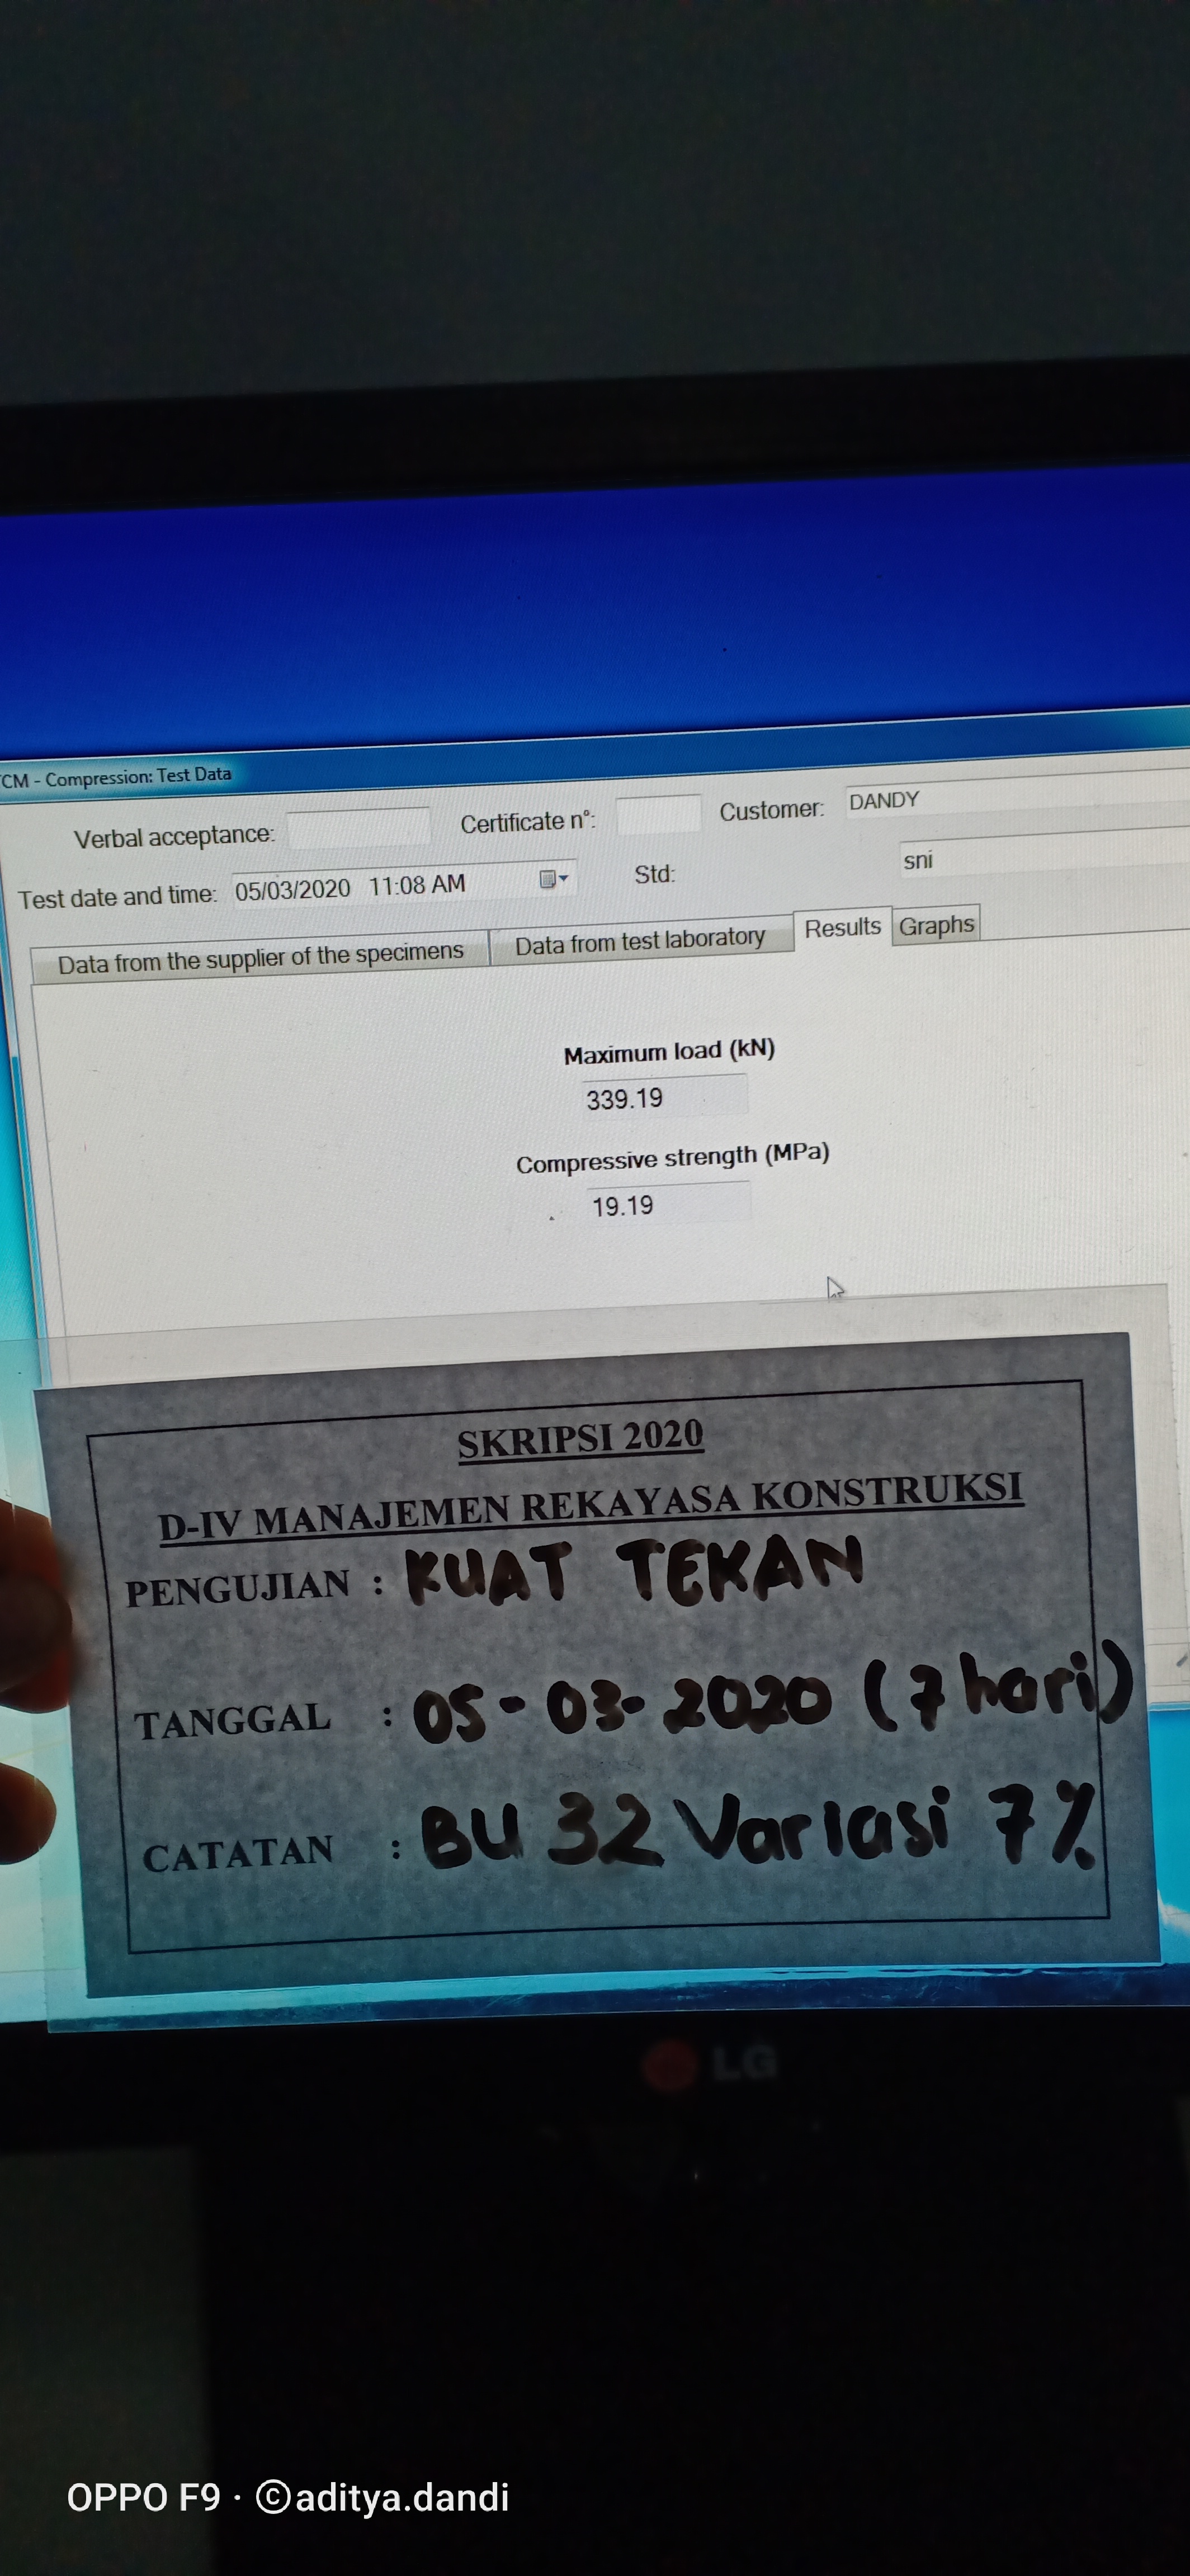 CM - Compression: Test Data
Verbal acceptance: Certificate n°: Customer: DANDY
Test date and time: 05/03/2020 11:08 AM Std: sni
Data from the supplier of the specimens Data from test laboratory Results Graphs
Maximum load (kN)
339.19
Compressive strength (MPa)
19.19
SKRIPSI 2020
D-IV MANAJEMEN REKAYASA KONSTRUKSI
PENGUJIAN : KUAT TEKAN
TANGGAL : 05-03-2020 (7 hari)
CATATAN : BU 32 Variasi 7%
LG
OPPO F9 · ©aditya.dandi